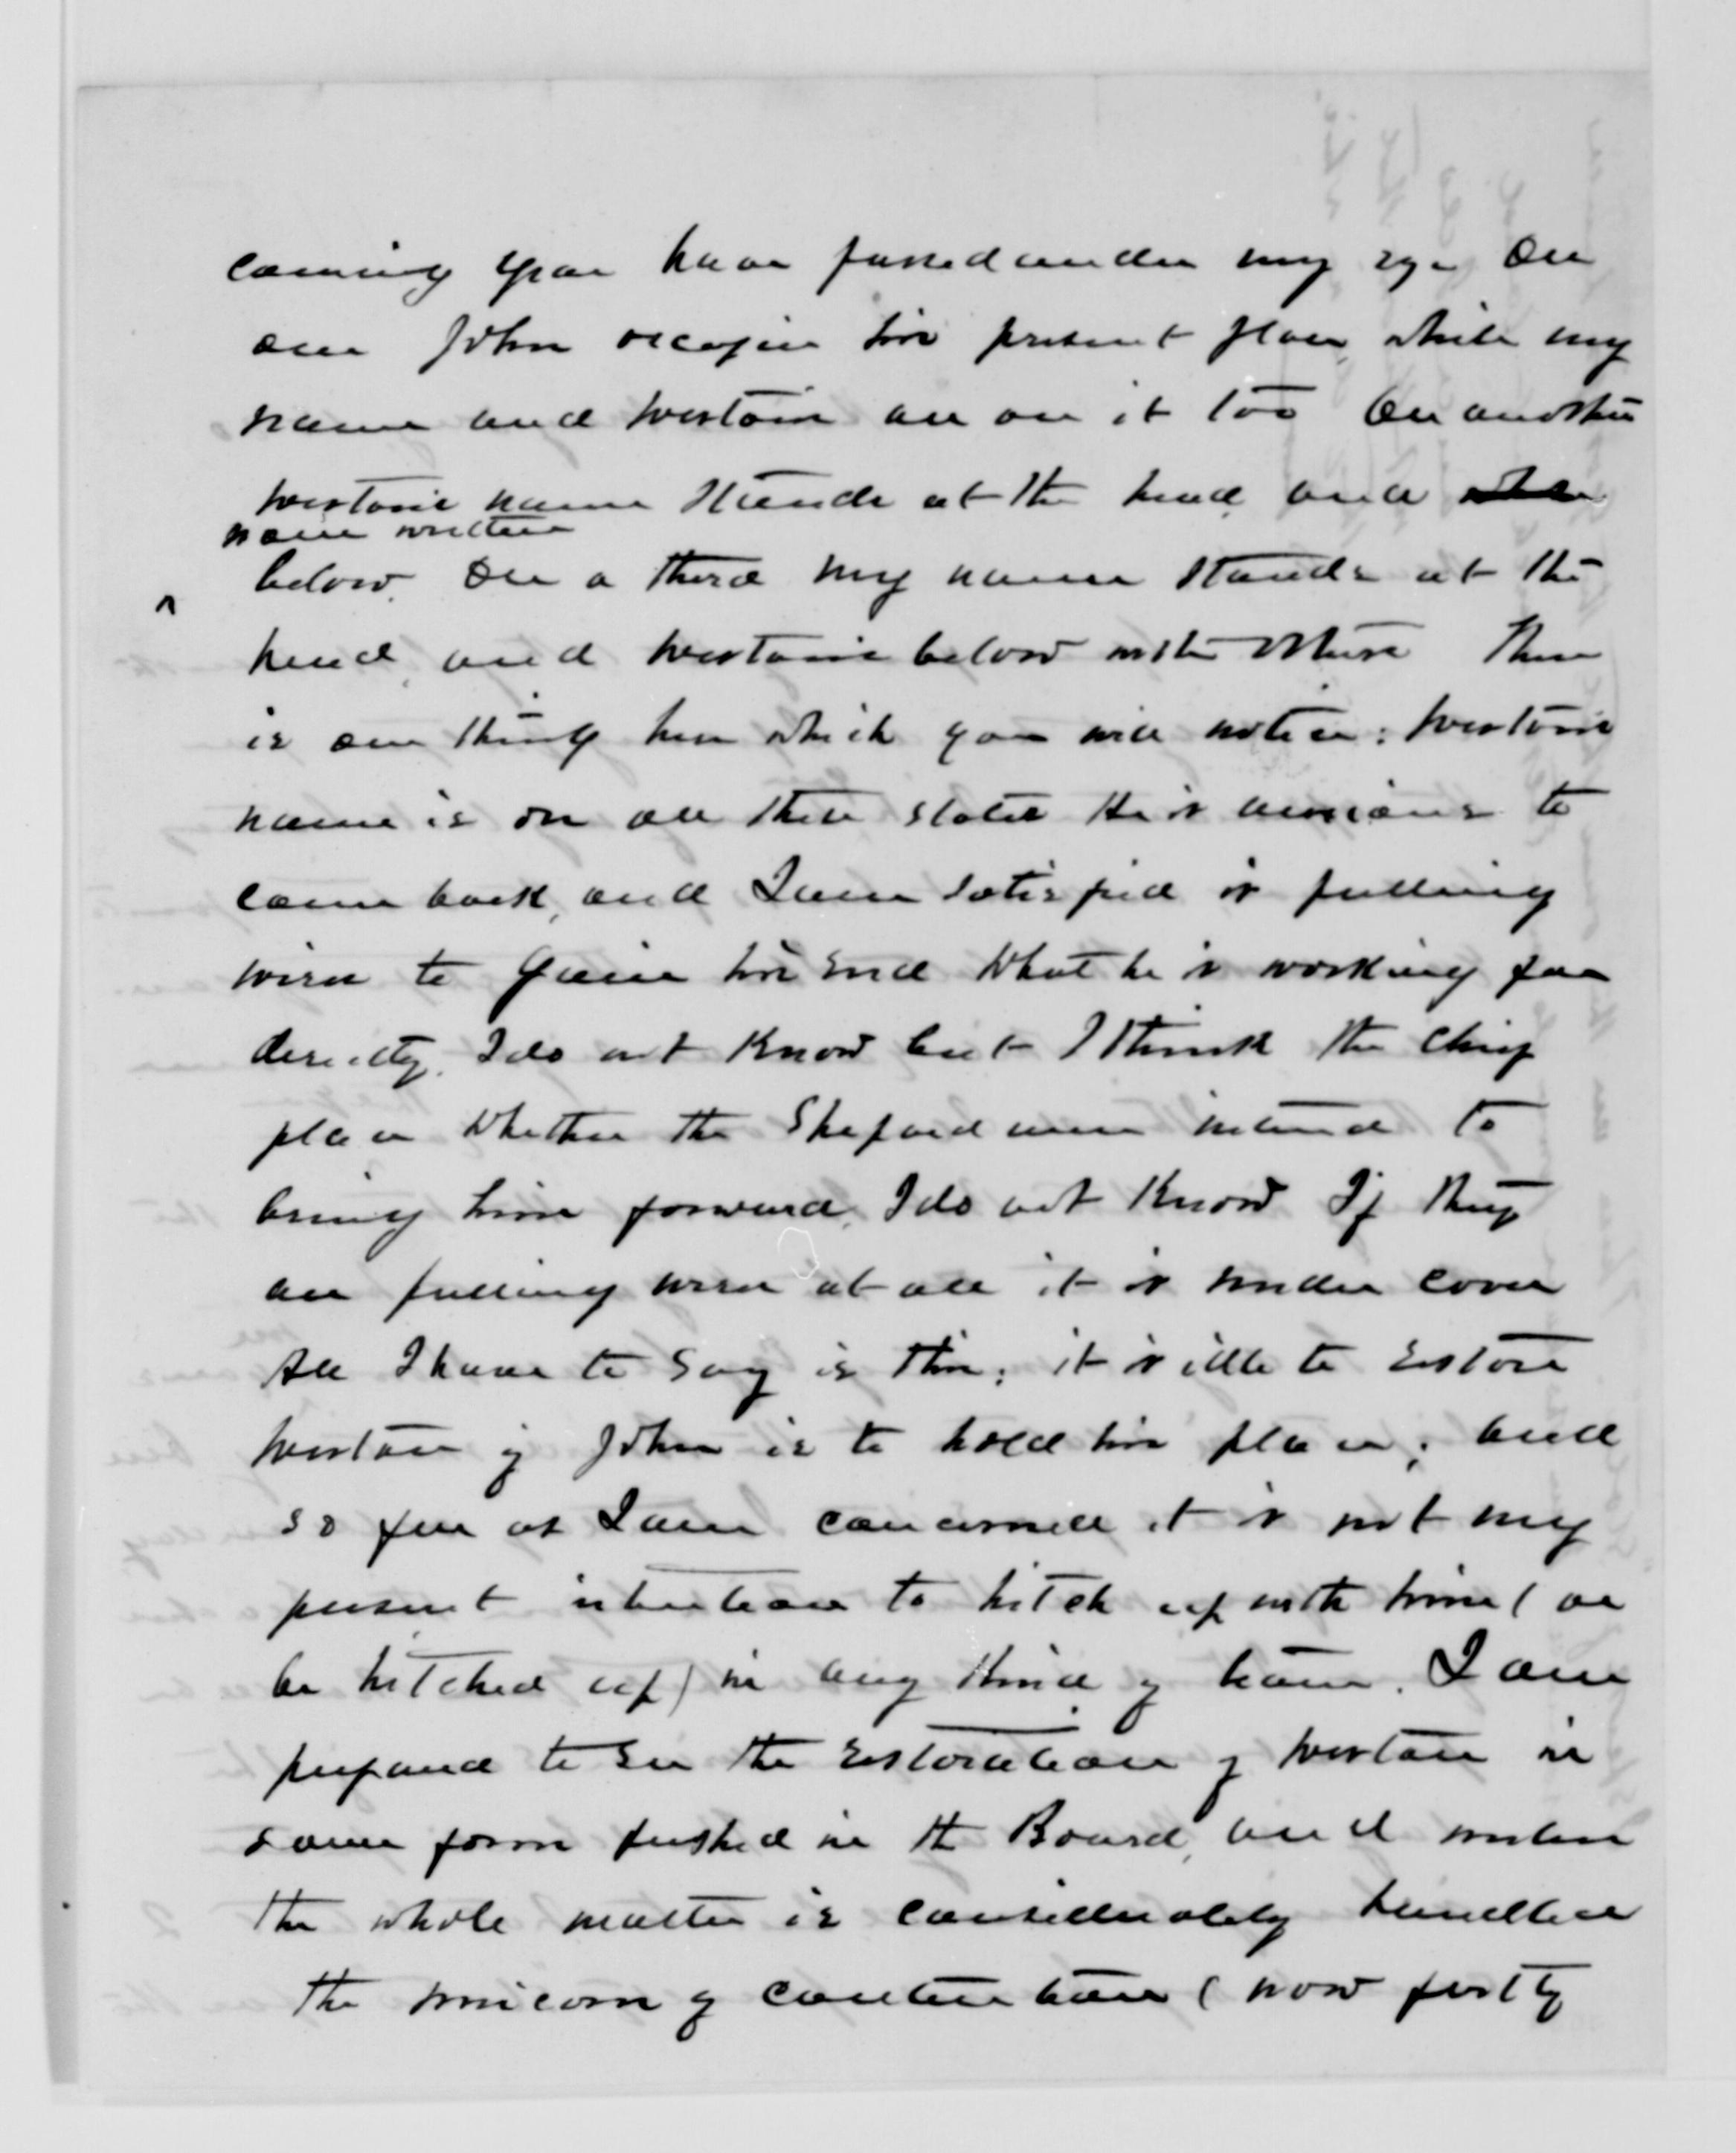 coming year have passed under my eye On
one John occupies his present place while my
name and Weston are on it too On another
Weston's name stands at the head and
name written
below. On a third my name stands at the
head, and Weston's below with others There
is one thing here which you will notice: Weston's
name is on all these slates He is anxious to
come back, and I am satisfied is pulling
wires to gain his end What he is working for
directly, I do not know but I think the chief
place Whether the Shepard men intend to
bring him forward, I do not know If they
are pulling wires at all it is under cover
All I have to say is this: it is idle to restore
Weston if John is to hold his place; and
so far as I am concerned it is not my
present intention to hitch up with him (or
be hitched up) in any kind of team. I am
prepared to see the restoration of Weston in
some form pushed in the Board, and unless
the whole matter is considerably handled
the unicorn of contention (now partly